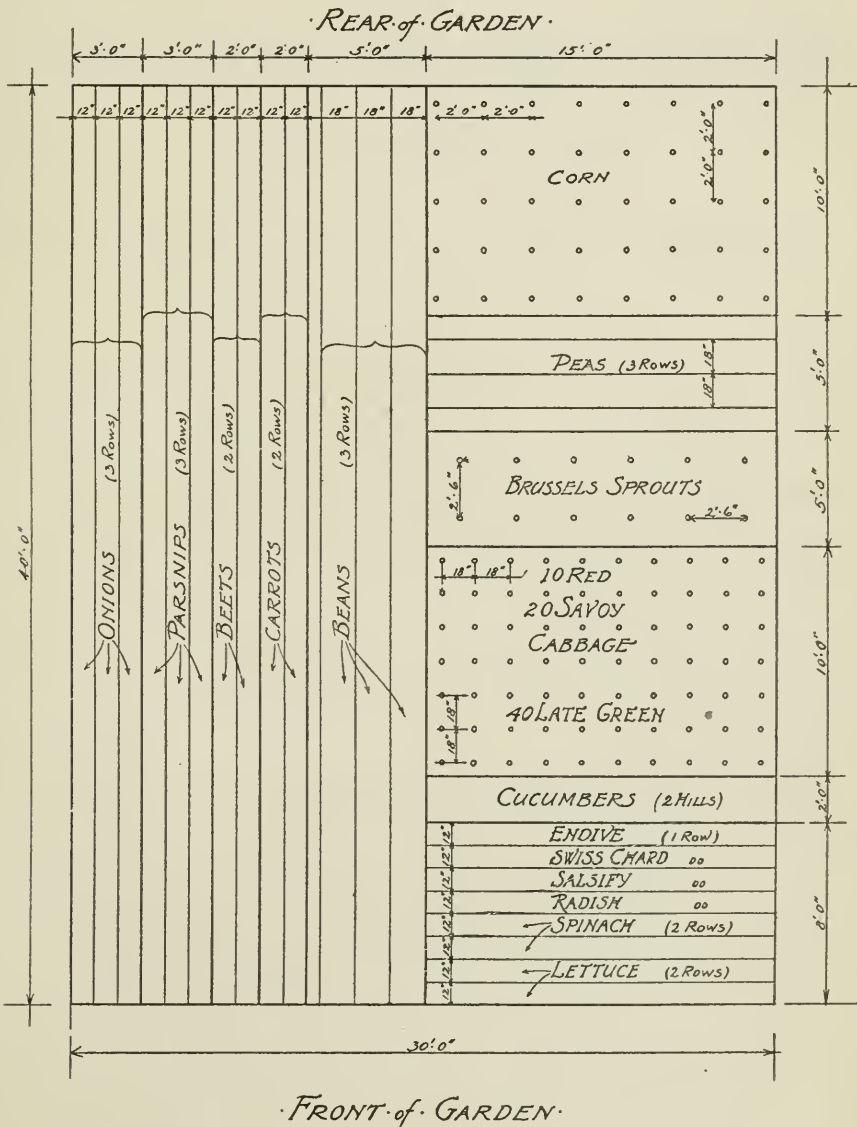 ·REAR·of·GARDEN·
3'·0" 3'·0" 2'·0" 2'·0" 5'·0" 15'·0"
12" 12" 12" 12" 12" 12" 12" 12" 12" 12" 18" 18" 18"
2'·0" 2'·0"
2'·0"
2'·0"
CORN
10'·0"
PEAS (3 ROWS)
18"
18"
5'·0"
BRUSSELS SPROUTS
2'·6"
2'·6"
5'·0"
18" 18" 10 RED
20 SAVOY
CABBAGE
40 LATE GREEN
18"
18"
10'·0"
CUCUMBERS (2 HILLS)
2'·0"
12" ENDIVE (1 ROW)
12" SWISS CHARD "
12" SALSIFY "
12" RADISH "
12" SPINACH (2 ROWS)
12"
12" LETTUCE (2 ROWS)
12"
8'·0"
40'·0"
ONIONS (3 ROWS)
PARSNIPS (3 ROWS)
BEETS (2 ROWS)
CARROTS (2 ROWS)
BEANS (3 ROWS)
30'·0"
·FRONT·of·GARDEN·